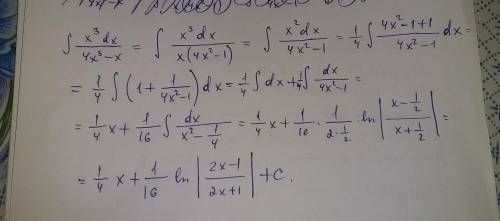 ∫ x³dx / (4x³-x) = ∫ x³dx / (x(4x²-1)) = ∫ x²dx / (4x²-1) = 1/4 ∫ (4x²-1+1) / (4x²-1) dx =
= 1/4 ∫ (1 + 1/(4x²-1)) dx = 1/4 ∫ dx + 1/4 ∫ dx / (4x²-1) =
= 1/4 x + 1/16 ∫ dx / (x² - 1/4) = 1/4 x + 1/16 · 1/(2·1/2) ln |(x - 1/2) / (x + 1/2)| =
= 1/4 x + 1/16 ln |(2x-1) / (2x+1)| + C.